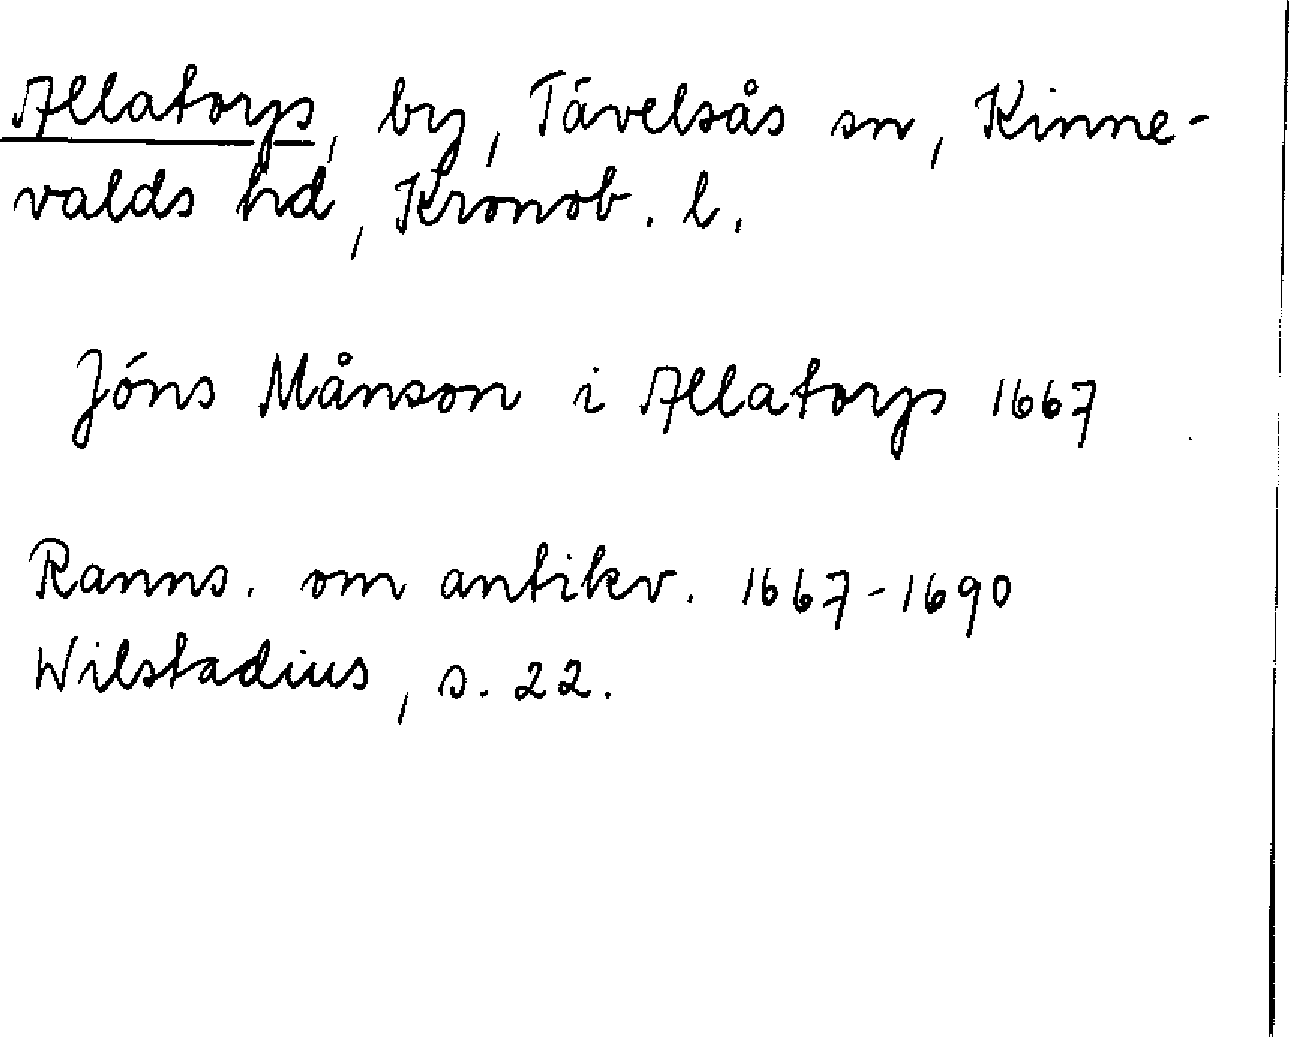 Allatorp, by, Távelsås sn, Kinne-
valds hd, Kronob. l.
Jóns Månson i Allatorp 1667
Ranns. om antikv. 1667-1690
Wilstadius, s. 22.